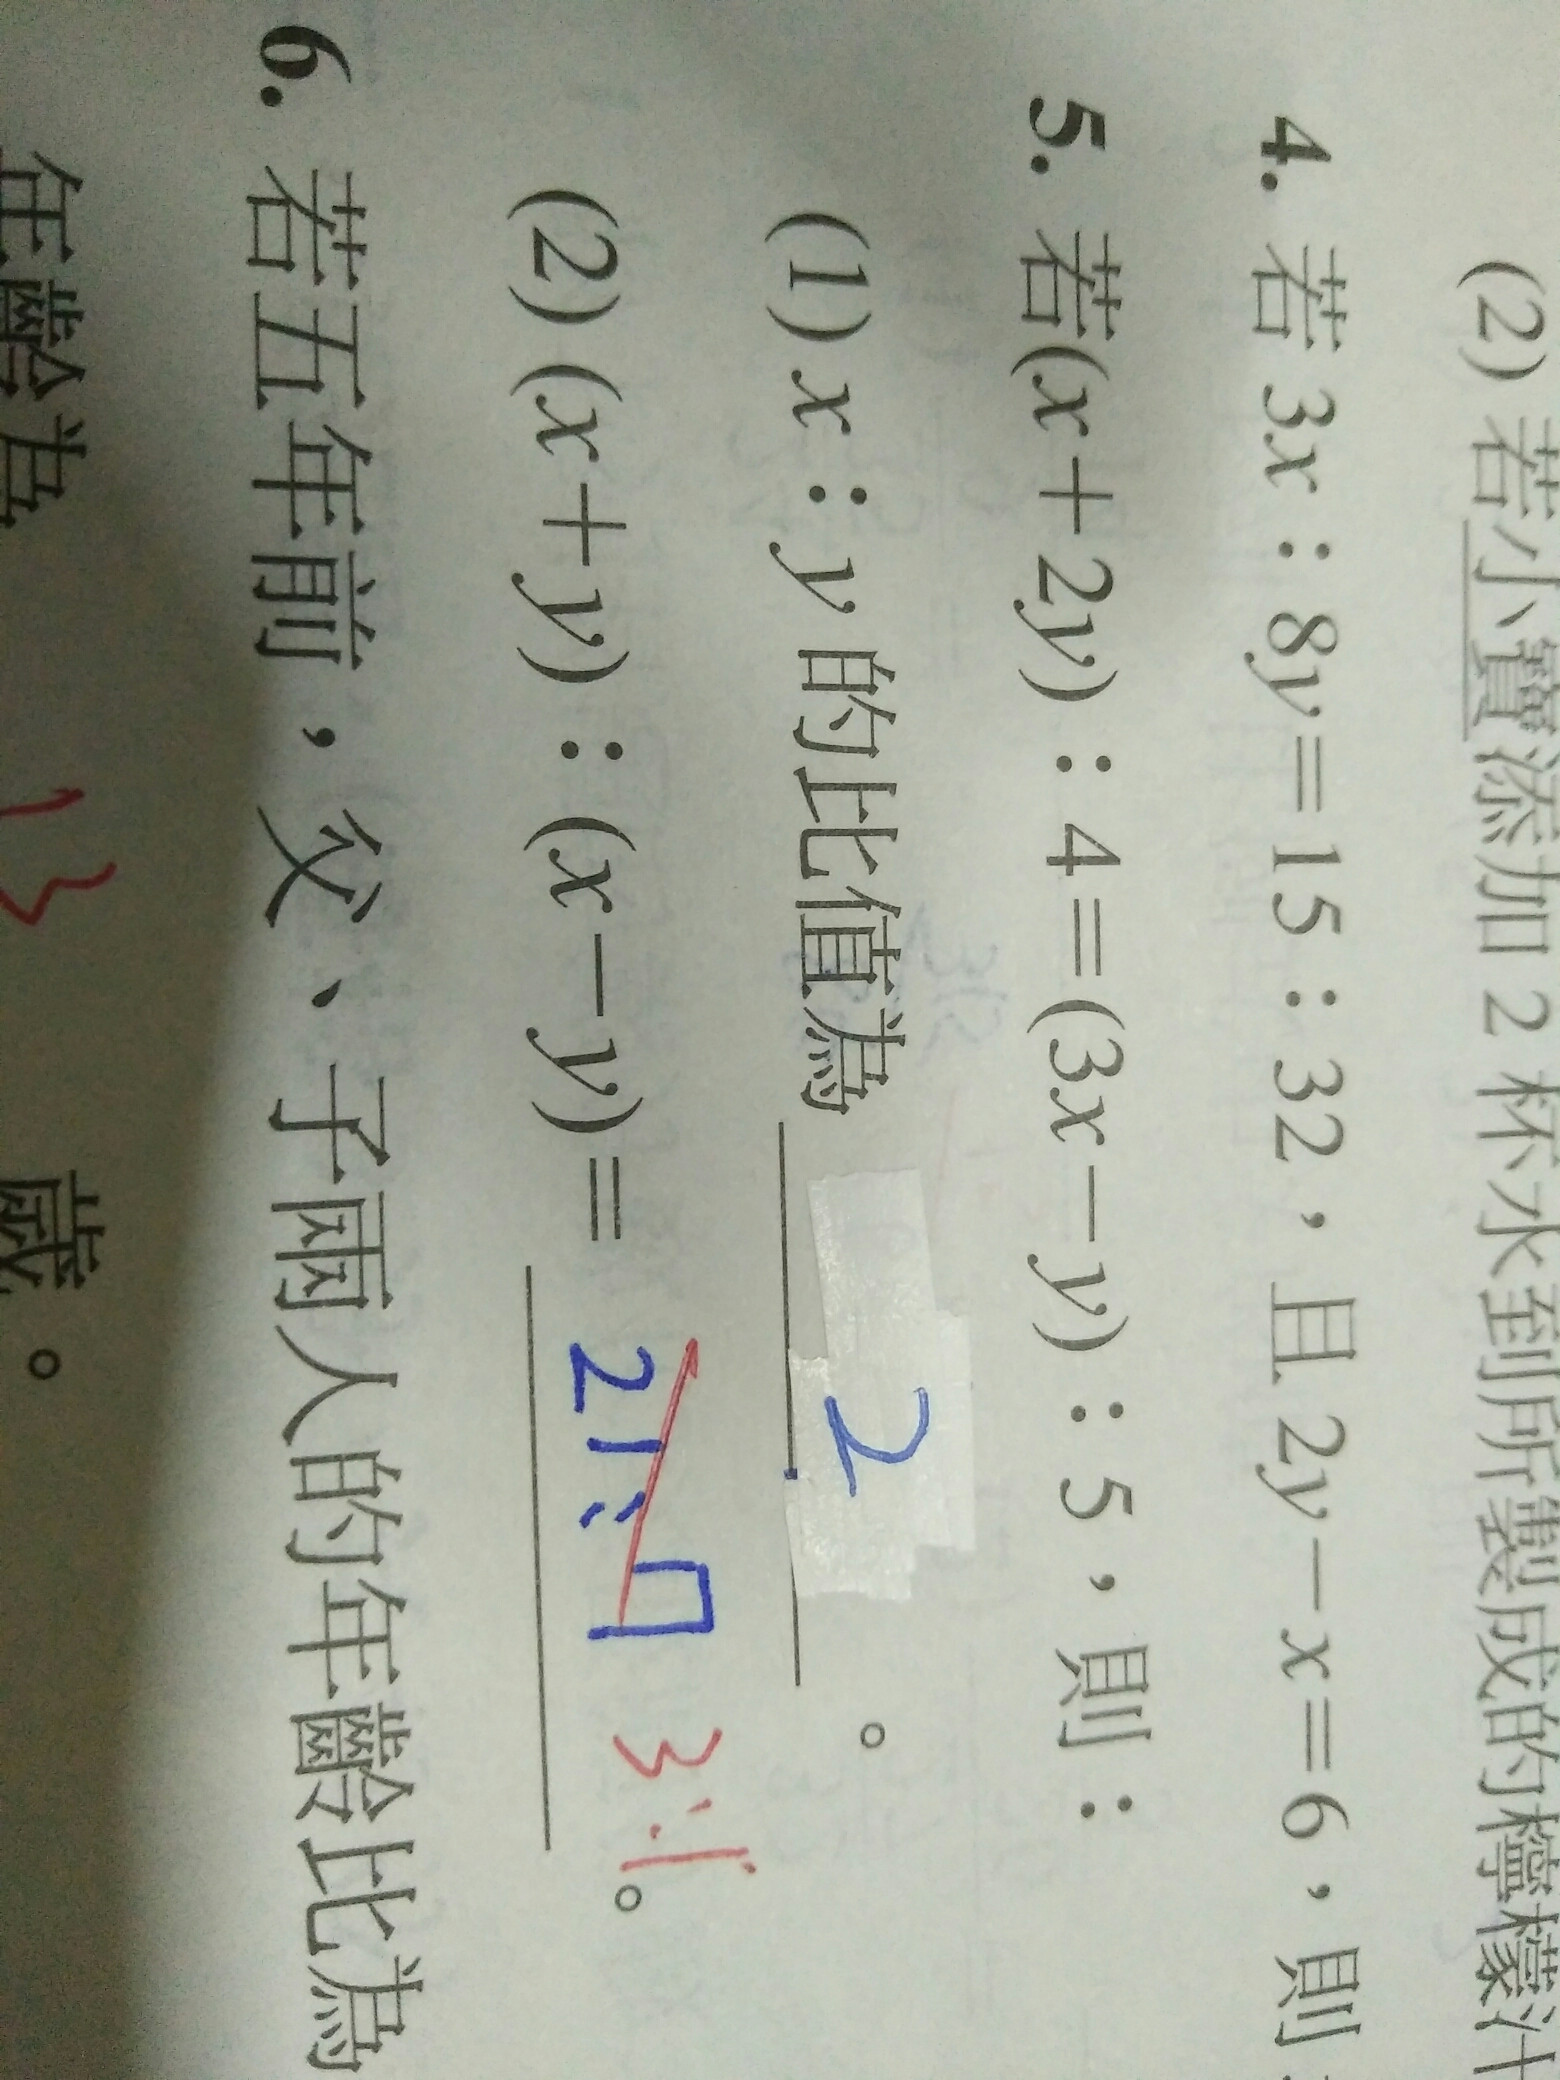 (2) 若小寶添加 2 杯水到所製成的檸檬汁
4. 若 3x：8y＝15：32，且 2y－x＝6，則
5. 若(x＋2y)：4＝(3x－y)：5，則：
(1) x：y 的比值為 2 。
(2) (x＋y)：(x－y)＝ 21： 3:1。
6. 若五年前，父、子兩人的年齡比為
年齡為 13 歲。